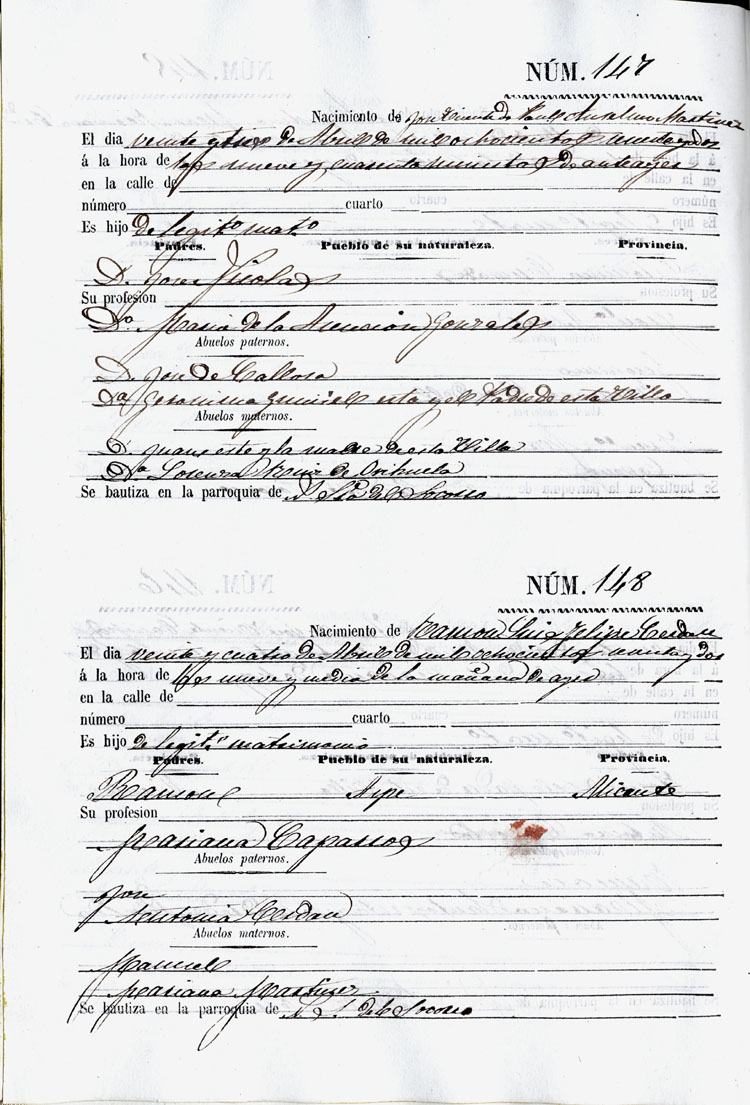 NÚM. 147
Nacimiento de Jose Vicente de Paul Anselmo Martinez
El dia veinte y tres de Abril de mil ochocientos cuarenta y dos
á la hora de las nueve y cuarenta minutos de anteayer
en la calle de
número cuarto
Es hijo de legito mato
Padres. Pueblo de su naturaleza. Provincia.
D. Jose Nicolas
Su profesion
Da. Maria de la Asencion Gonzales
Abuelos paternos.
D. Jose de Callosa
Da Geronima esta y el Padre de esta Villa
Abuelos maternos.
D. Juan este y la madre de esta Villa
Da. Lorenza Ruiz de Orihuela
Se bautiza en la parroquia de N. Sra. del Socorro
NÚM. 148
Nacimiento de Ramon Luis Felipe Cerdan
El dia veinte y cuatro de Abril de mil ochocientos cuarenta y dos
á la hora de las nueve y media de la mañana de ayer
en la calle de
número cuarto
Es hijo de legito. matrimonio
Padres. Pueblo de su naturaleza. Provincia.
Ramon Aspe Alicante
Su profesion
Mariana Caparros
Abuelos paternos.
Jose
Antonia Cerdan
Abuelos maternos.
Manuel
Mariana Martinez
Se bautiza en la parroquia de N. S. del Socorro